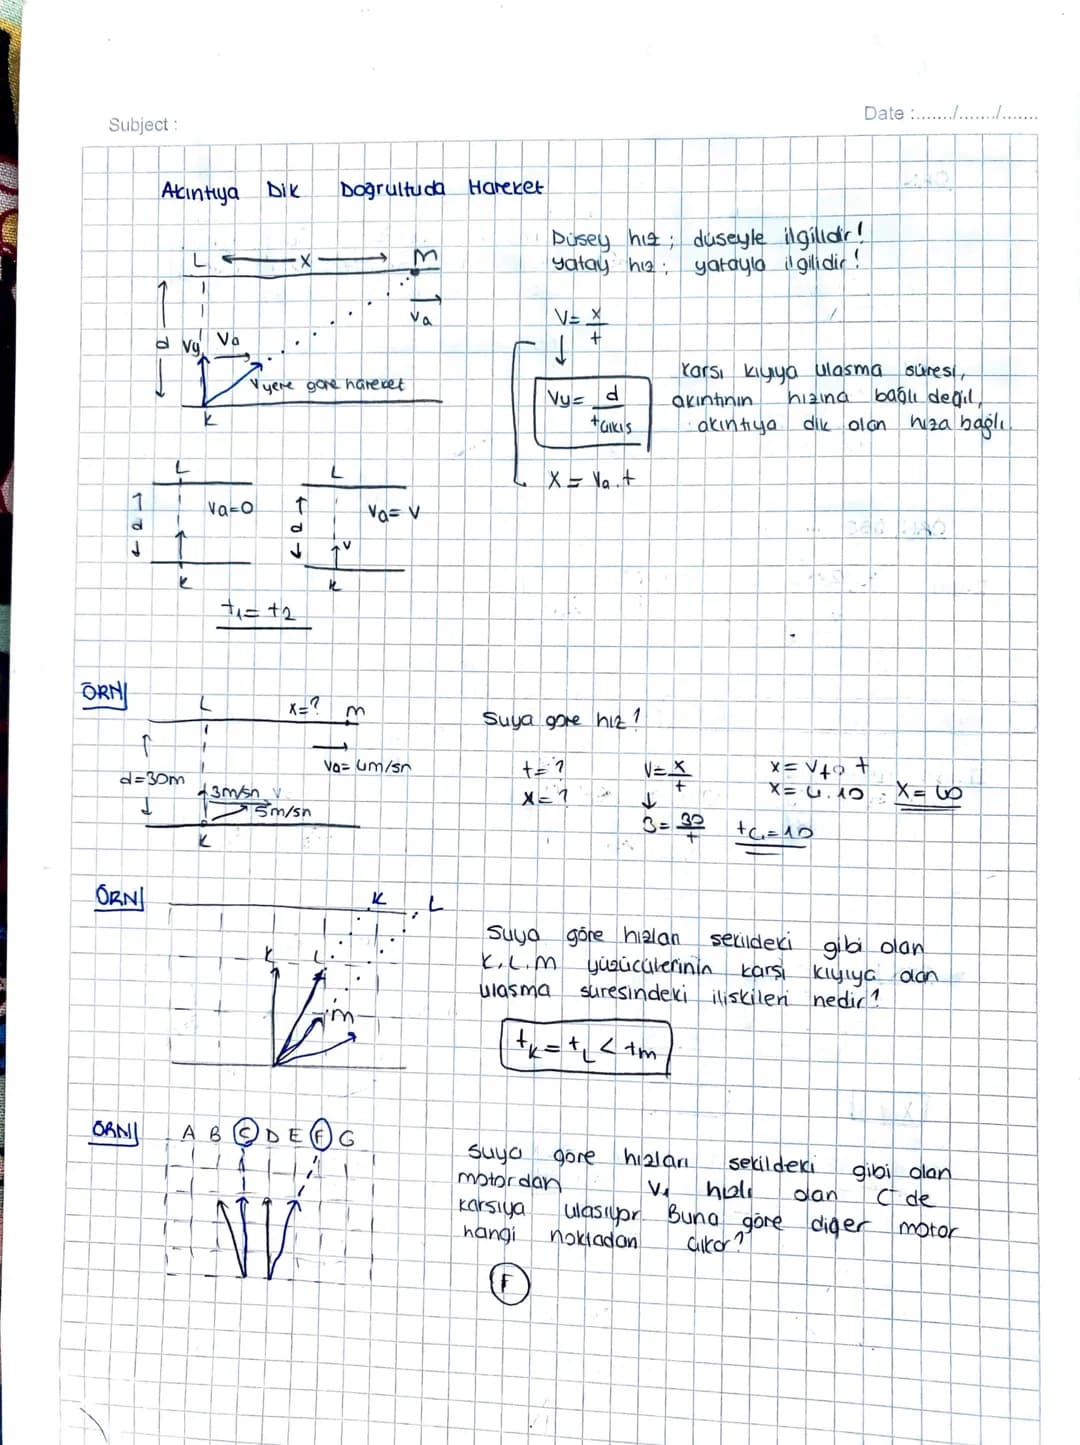 Subject :
Date :......./......./.......
Akıntıya Dik Doğrultuda Hareket
Düşey hız ; düşeyle ilgilidir!
yatay hız ; yatayla ilgilidir!
L x m
Va
d Vy Va
V yere göre hareket
K
V= x/t
Vy= d/tçıkış
X = Va.t
Karşı kıyıya ulaşma süresi,
akıntının hızına bağlı değil,
akıntıya dik olan hıza bağlı.
L L
d Va=0 d Va= V
V
K K
t1= t2
ÖRN
L x=? m
Va= 4m/sn
d=30m
3m/sn V
5m/sn
K
Suya göre hız!
t=?
x=?
V= x/t
3= 30/t
tç=10
x= 4.10
ÖRN
K L
K L
m
Suya göre hızları şekildeki gibi olan
K, L, M yüzücülerinin karşı kıyıya olan
ulaşma süresindeki ilişkileri nedir?
tK = tL < tm
ÖRN
A B C D E F G
Suya göre hızları şekildeki gibi olan
motordan V1 hızlı olan C de
karşıya ulaşıyor. Buna göre diğer motor
hangi noktadan çıkar?
F